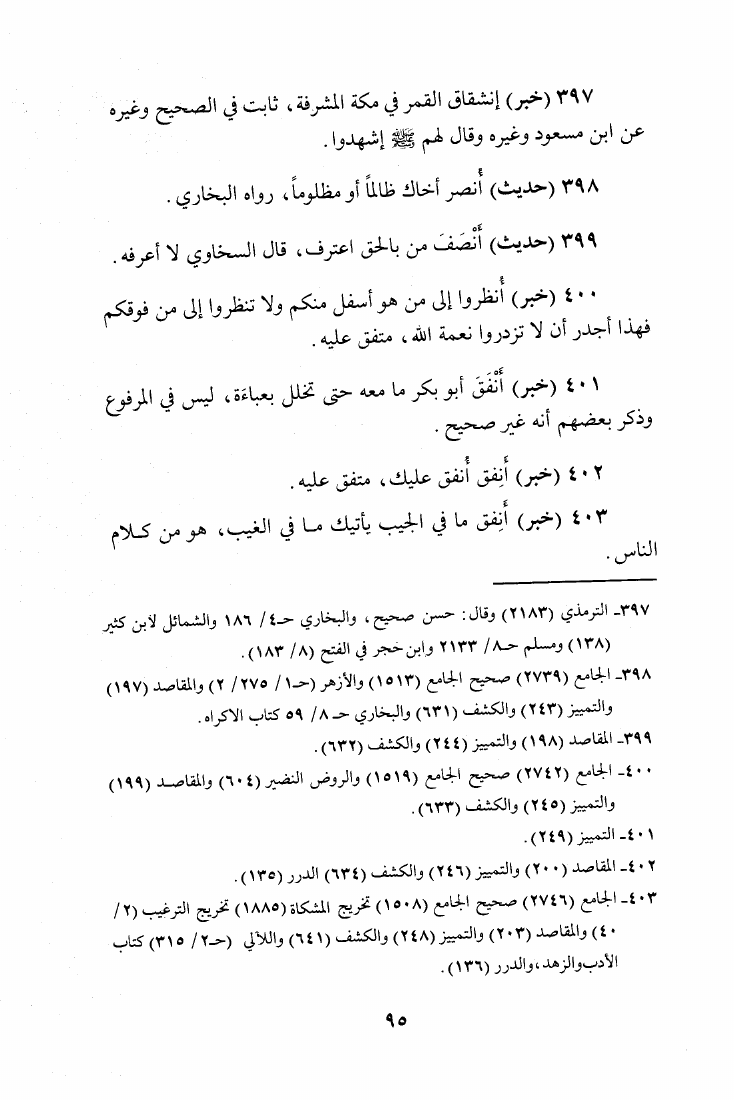 ٣٩٧ (خبر) إنشقاق القمر في مكة المشرفة، ثابت في الصحيح وغيره
عن ابن مسعود وغيره وقال لهم ﷺ إشهدوا.
٣٩٨ (حديث) أُنصر أخاك ظالماً أو مظلوماً، رواه البخاري.
٣٩٩ (حديث) أَنْصَفَ من بالحق اعترف، قال السخاوي لا أعرفه.
٤٠٠ (خبر) أُنظروا إلى من هو أسفل منكم ولا تنظروا إلى من فوقكم
فهذا أجدر أن لا تزدروا نعمة الله، متفق عليه.
٤٠١ (خبر) أَنْفَقَ أبو بكر ما معه حتى تخلل بعباءَة، ليس في المرفوع
وذكر بعضهم أنه غير صحيح.
٤٠٢ (خبر) أَنِفق أُنفق عليك، متفق عليه.
٤٠٣ (خبر) أَنِفق ما في الجيب يأتيك مـا في الغيب، هو من كـلام
الناس.
٣٩٧ـ الترمذي (٢١٨٣) وقال: حسن صحيح، والبخاري حـ٤/ ١٨٦ والشمائل لابن كثير
(١٣٨) ومسلم حـ٨/ ٢١٣٣ وابن حجر في الفتح (٨/ ١٨٣).
٣٩٨ـ الجامع (٢٧٣٩) صحيح الجامع (١٥١٣) والأزهر (حـ١/ ٢٧٥/ ٢) والمقاصد (١٩٧)
والتمييز (٢٤٣) والكشف (٦٣١) والبخاري حـ ٨/ ٥٩ كتاب الاكراه.
٣٩٩ـ المقاصد (١٩٨) والتمييز (٢٤٤) والكشف (٦٣٢).
٤٠٠ـ الجامع (٢٧٤٢) صحيح الجامع (١٥١٩) والروض النضير (٦٠٤) والمقاصـد (١٩٩)
والتمييز (٢٤٥) والكشف (٦٣٣).
٤٠١ـ التمييز (٢٤٩).
٤٠٢ـ المقاصد (٢٠٠) والتمييز (٢٤٦) والكشف (٦٣٤) الدرر (١٣٥).
٤٠٣ـ الجامع (٢٧٤٦) صحيح الجامع (١٥٠٨) تخريج المشكاة (١٨٨٥) تخريج الترغيب (٢/
٤٠) والمقاصد (٢٠٣) والتمييز (٢٤٨) والكشف (٦٤١) واللآلي (حـ٢/ ٣١٥) كتاب
الأدب والزهد، والدرر (١٣٦).
٩٥